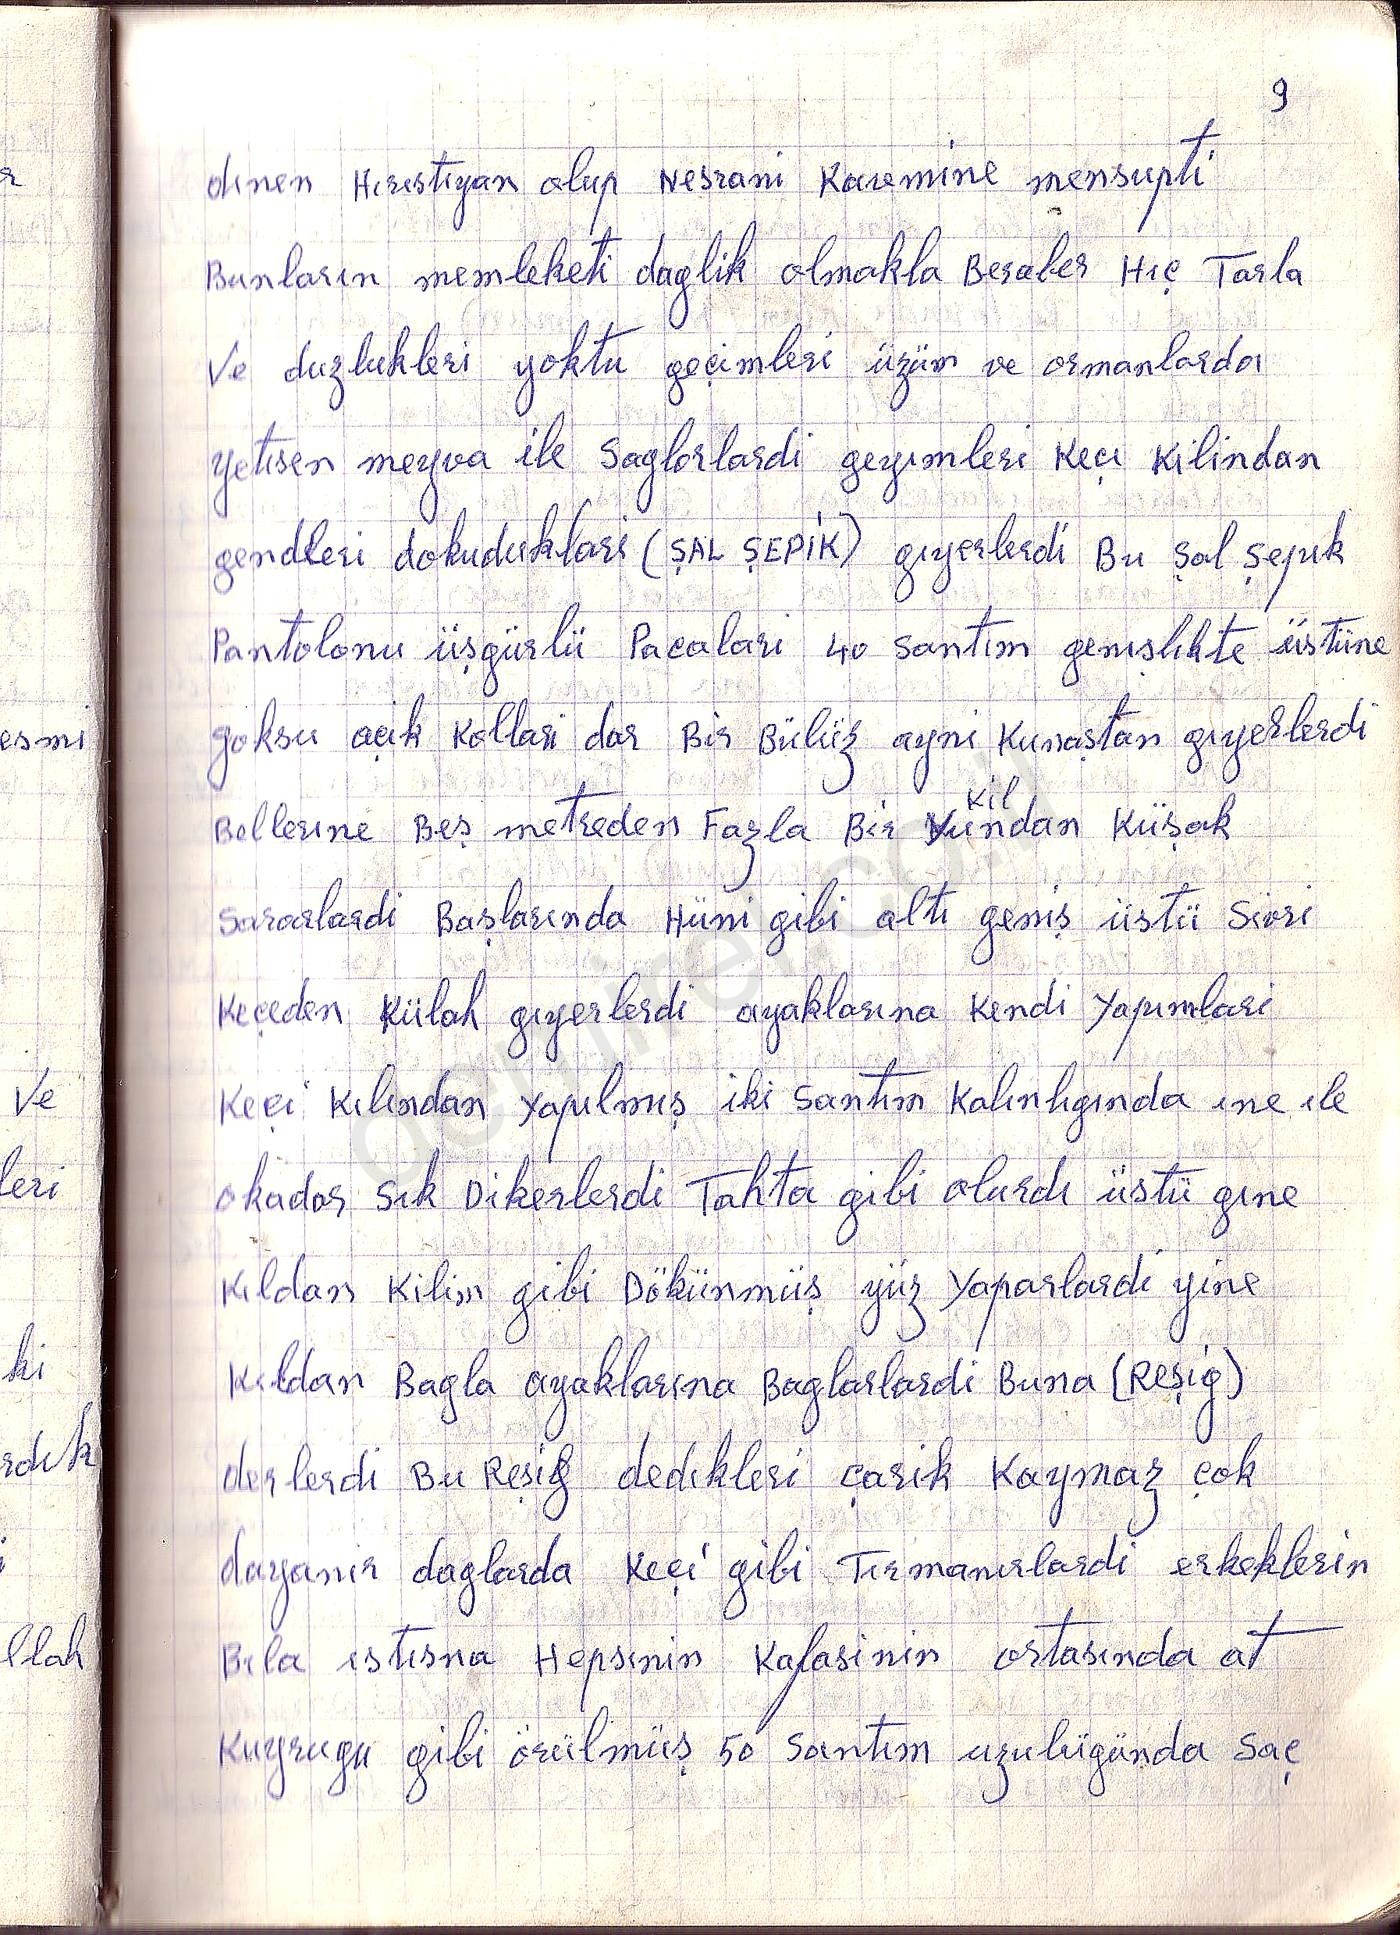 9
dınen Hırıstıyan olup Nesrani Kavmine mensupti
Bunların memleketi daglik olmakla Beraber Hıç Tarla
Ve duzlukleri yoktu geçimleri üzüm ve ormanlarda
yetısen meyva ile Saglorlardi geyımleri Keçı Kilindan
gendleri dokuduklari (ŞAL ŞEPİK) gıyerlerdi Bu Şal Şepık
Pantolonu üşgürlü Pacalari 40 Santım genışlıkte üstüne
goksu açik Kollari dar Bir Bülüz ayni Kumaştan gıyerlerdi
Bellerıne Beş metreden Fazla Bir Kil Yundan Küşak
Sararlardi Başlarında Hüni gibi altı geniş üstü Sivri
Keçeden Külah gıyerlerdi ayaklarına Kendi Yapımlari
Keçi Kılından Yapılmış iki Santım Kalınlıgında ıne ıle
okadar Sık Dikerlerdi Tahta gibi olurdı üstü gıne
Kıldan Kilim gibi Dökünmüş yüz Yaparlardi yine
Kıldan Bagla ayaklarına Baglarlardi Buna (Reşig)
derlerdi Bu Reşig dedıkleri çarik Kaymaz çok
dayanir daglarda Keçi gibi Tırmanırlardi erkeklerin
Bıla ıstısna Hepsının Kafasinin ortasında at
Kuyrugu gibi örülmüş 50 Santım uzulügünda Saç
esmi
Ve
leri
ki
rdık
llah
demirel.co.il